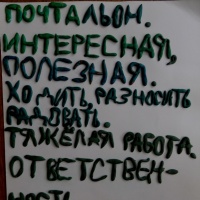 ПОЧТАЛЬОН.
ИНТЕРЕСНАЯ,
ПОЛЕЗНАЯ.
ХОДИТЬ, РАЗНОСИТЬ
РАДОВАТЬ.
ТЯЖЁЛАЯ РАБОТА.
ОТВЕТСТВЕН-
НОСТЬ